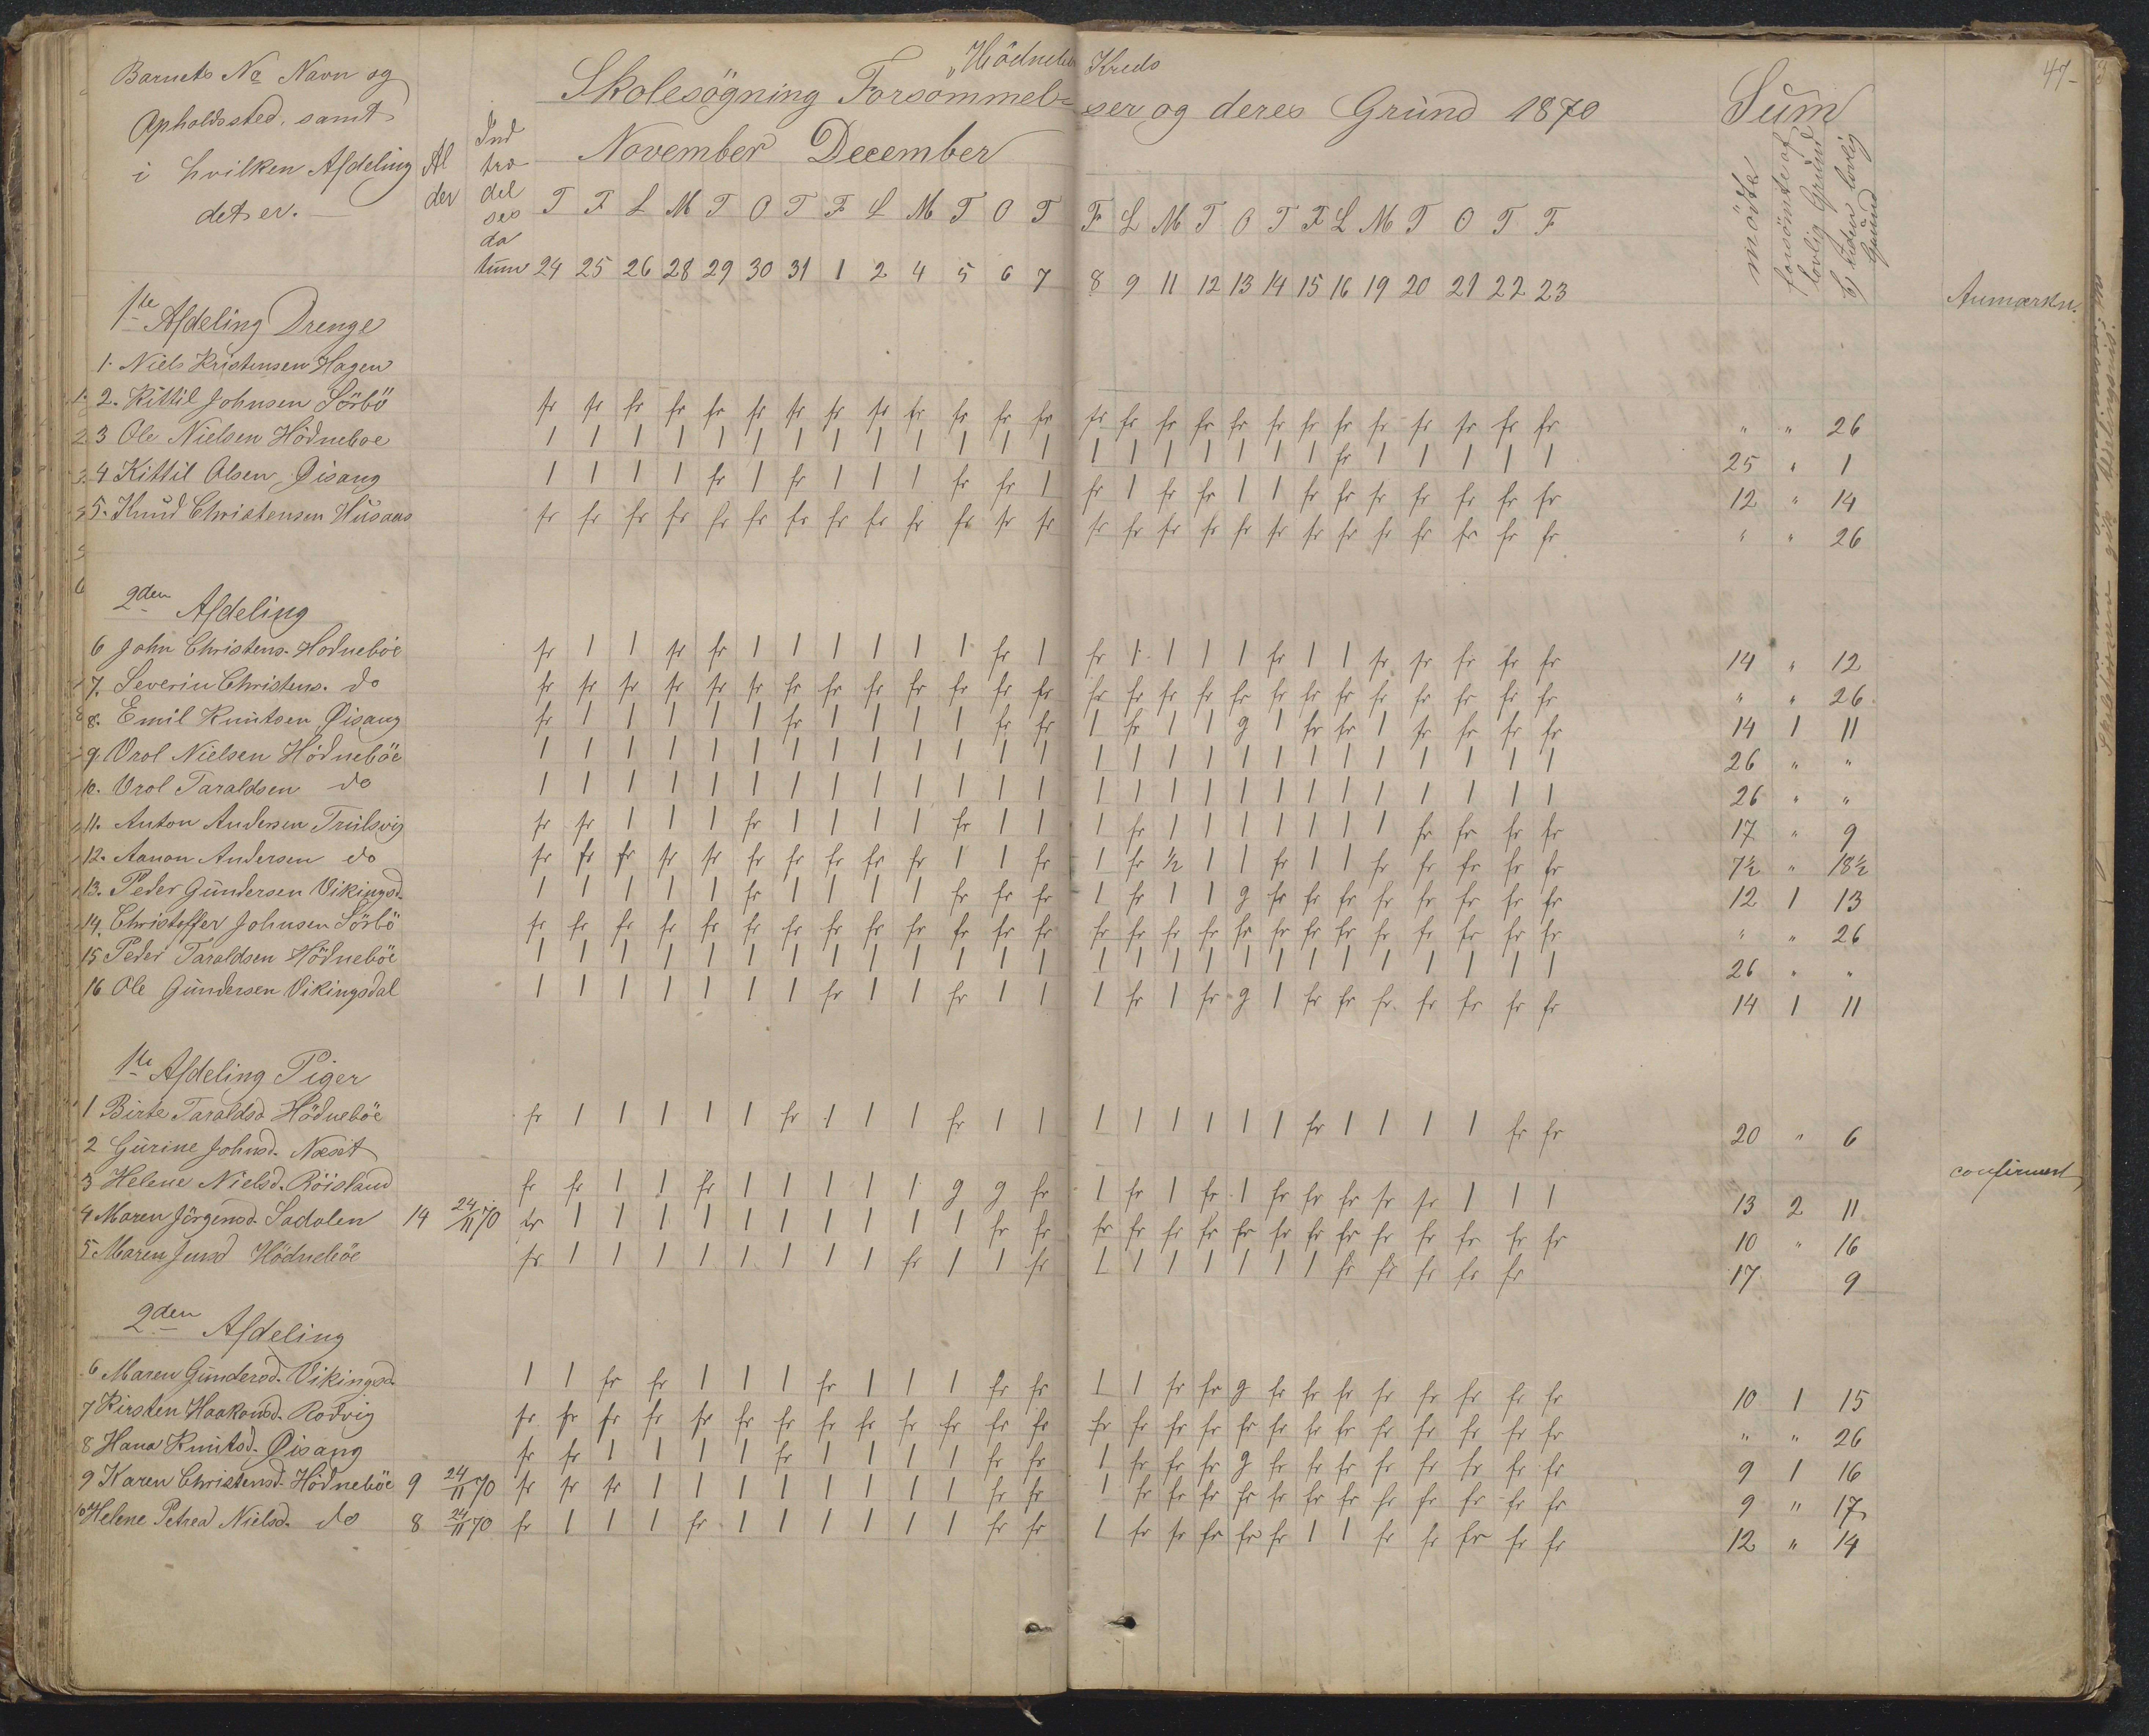 Hödneböe Kreds
47-
Barnets No Navn og
Opholdssted, samt
i hvilken Afdeling
det er.
Al
der
Ind
træ
del
ses
da
tum
Skolesögning Forsømmelser og deres Grund 1870
November December
Sum
mödte
forsömte af
lovlig Grund
b) uden lovlig
Grund
Anmærkn.
T F L M T O T F L M T O T F L M T O T F L M T O T F
24 25 26 28 29 30 31 1 2 4 5 6 7 8 9 11 12 13 14 15 16 19 20 21 22 23
1ste Afdeling Drenge
1. Niels Kristensen Hagen
2. Kittil Johnsen Sörbö fr fr fr fr fr fr fr fr fr fr fr fr fr fr fr fr fr fr fr fr fr fr fr fr fr fr " " 26
3 Ole Nielsen Hödneboe 1 1 1 1 1 1 1 1 1 1 1 1 1 1 1 1 1 1 1 1 fr 1 1 1 1 1 25 " 1
4 Kittil Olsen Øisang 1 1 1 1 fr 1 fr 1 1 1 fr fr 1 fr 1 fr fr 1 1 fr fr fr fr fr fr fr 12 " 14
5. Knud Christensen Husaas fr fr fr fr fr fr fr fr fr fr fr fr fr fr fr fr fr fr fr fr fr fr fr fr fr fr " " 26
2den Afdeling
6 John Christens. Hodneböe fr 1 1 fr fr 1 1 1 1 1 1 fr 1 fr 1 1 1 1 fr 1 1 fr fr fr fr fr 14 " 12
7. Severin Christens. do fr fr fr fr fr fr fr fr fr fr fr fr fr fr fr fr fr fr fr fr fr fr fr fr fr fr " " 26
8. Emil Knutsen Øisang fr 1 1 1 1 1 fr 1 1 1 1 fr fr 1 fr 1 1 g 1 fr fr 1 fr fr fr fr 14 1 11
9. Orol Nielsen Hödneböe 1 1 1 1 1 1 1 1 1 1 1 1 1 1 1 1 1 1 1 1 1 1 1 1 1 1 26 " "
10. Orol Taraldsen do 1 1 1 1 1 1 1 1 1 1 1 1 1 1 1 1 1 1 1 1 1 1 1 1 1 1 26 " "
11. Anton Andersen Trulsvig fr fr 1 1 1 fr 1 1 1 1 fr 1 1 1 fr 1 1 1 1 1 1 1 fr fr fr fr 17 " 9
12. Aanon Andersen do fr fr fr fr fr fr fr fr fr fr 1 1 fr 1 fr ½ 1 1 fr 1 1 fr fr fr fr fr 7½ " 18½
13. Peder Gundersen Vikingsd. 1 1 1 1 1 fr 1 1 1 1 fr fr fr 1 fr 1 1 g fr fr fr fr fr fr fr fr 12 1 13
14. Christoffer Johnsen Sörbö fr fr fr fr fr fr fr fr fr fr fr fr fr fr fr fr fr fr fr fr fr fr fr fr fr fr " " 26
15 Peder Taraldsen Hödneböe 1 1 1 1 1 1 1 1 1 1 1 1 1 1 1 1 1 1 1 1 1 1 1 1 1 1 26 " "
16 Ole Gundersen Vikingsdal 1 1 1 1 1 1 1 fr 1 1 fr 1 1 1 fr 1 fr g 1 fr fr fr fr fr fr fr 14 1 11
1ste Afdeling Piger
1 Birte Taraldsd Hödneböe fr 1 1 1 1 1 fr 1 1 1 fr 1 1 1 1 1 1 1 1 fr 1 1 1 1 fr fr 20 " 6
2 Gurine Johnsd. Næset confirmert
3 Helene Nielsd. Röisland fr fr 1 1 fr 1 1 1 1 1 g g fr 1 fr 1 fr 1 fr fr fr fr fr 1 1 1 13 2 11
4 Maren Jörgensd. Sadalen 14 24/11 70 fr 1 1 1 1 1 1 1 1 1 1 fr fr fr fr fr fr fr fr fr fr fr fr fr fr fr 10 " 16
5 Maren Jensd Hödneböe fr 1 1 1 1 1 1 1 1 fr 1 1 fr 1 1 1 1 1 1 1 fr fr fr fr fr 17 9
2den Afdeling
6 Maren Gundersd. Vikingsd. 1 1 fr fr 1 1 1 fr 1 1 1 fr fr 1 1 fr fr g fr fr fr fr fr fr fr fr 10 1 15
7 Kirsten Haakonsd. Rodvig fr fr fr fr fr fr fr fr fr fr fr fr fr fr fr fr fr fr fr fr fr fr fr fr fr fr " " 26
8 Hana Knutsd. Øisang fr fr 1 1 1 1 fr 1 1 1 1 fr fr 1 fr fr fr g fr fr fr fr fr fr fr fr 9 1 16
9 Karen Christensd. Hödneböe 9 24/11 70 fr fr fr 1 1 1 1 1 1 1 1 fr fr 1 fr fr fr fr fr fr fr fr fr fr fr fr 9 " 17
10 Helene Petrea Nielsd. do 8 24/11 70 fr 1 1 1 fr 1 1 1 1 1 1 fr fr 1 fr fr fr fr fr 1 1 fr fr fr fr fr 12 " 14